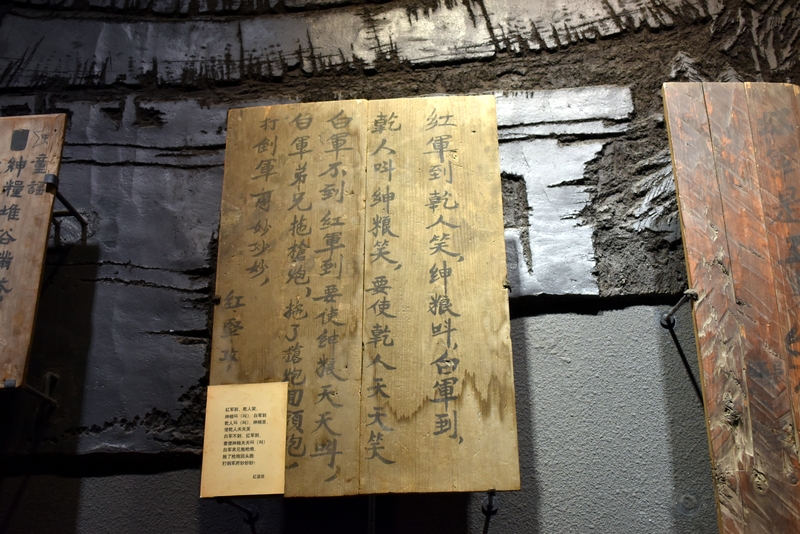 紅軍到乾人笑,紳粮叫,白軍到,
乾人叫紳粮笑,要使乾人天天笑
白軍不到紅軍到要使紳粮天天叫,
白軍弟兄拖槍炮,拖了槍炮囬頭跑,
打倒軍 妙妙妙,
紅堅
红军到,乾人笑,
绅粮叫(叫) 白军到
乾人叫(叫),绅粮笑,
使乾人天天笑
白军不到,红军到,
要使绅粮天天叫(叫)
白军弟兄拖枪炮,
拖了枪炮回头跑
打倒军阀妙妙妙!
童謠
紳糧堆谷